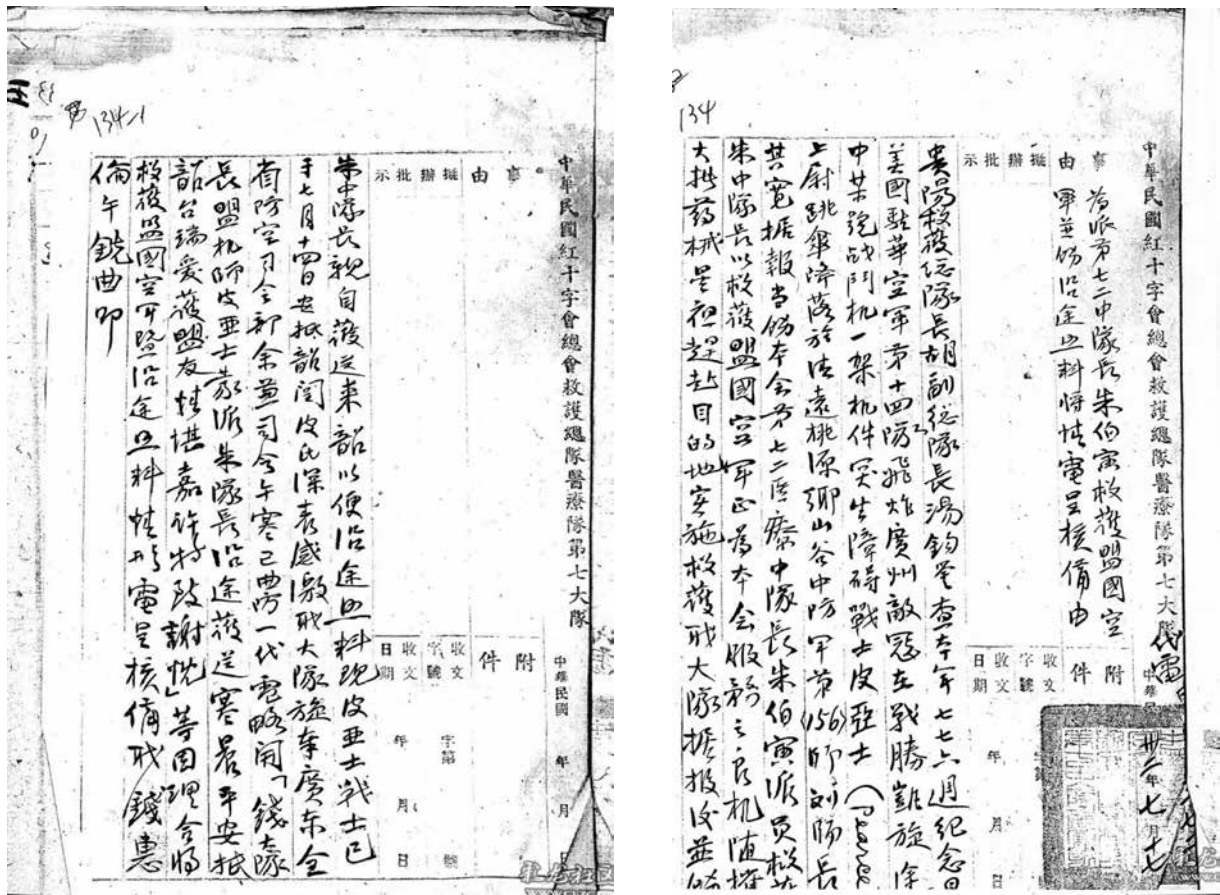 134
中華民國紅十字會總會救護總隊醫療隊第七大隊
代電
中華民
卅二年七月十七
事由
為派第七二中隊長朱伯寅救護盟國空
軍並飭沿途照料情情電呈核備由
附件
擬辦
批示
收文字號
收文日期
年
月
日
貴陽救護總隊長胡副總隊長湯鈞鑒查本年七七六週紀念日
美國駐華空軍第十四隊飛炸廣州敵寇在戰勝凱旋途
中某號战鬥机一架机件突生障碍戰士皮亞士
上尉跳傘降落於清遠桃源鄉山谷中防軍第(156)師刘師長
其寬据報当飭本会第七二医療中隊長朱伯寅派員救護
朱中隊長以救護盟國空軍正為本会服務之良机随擕
大批药械星夜趕赴目的地実施救護职大隊据报后並飭
134-1
中華民國紅十字會總會救護總隊醫療隊第七大隊
中華民國
年
月
事由
附件
擬辦
批示
收文字號
字第
號
收文日期
年
月
日
朱中隊長親自護送來韶以便沿途照料現皮亚士战士已
于七月十四日安抵韶関皮氏深表感激职大隊旋奉廣东全
省防空司令部余兼司令午寒已曲防一代電略開「錢隊
長盟机師皮亚士蒙派朱隊長沿途護送寒晨平安抵
韶台瑞愛護盟友情堪嘉許特致謝忱」等因理合將
救護盟國空軍暨沿途照料情形電呈核備职錢惠
倫午銑曲叩